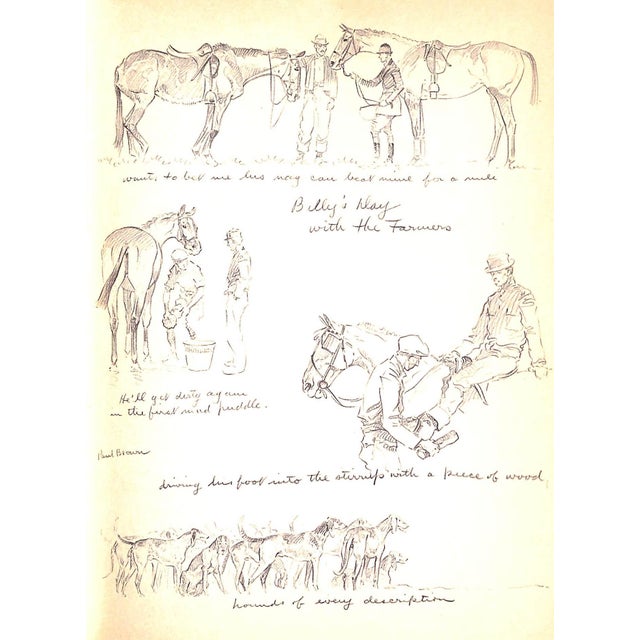 wants to bet me his nag can beat mine for a mile
Billy's Day
with the Farmers
He'll get dirty again
in the first mud puddle.
Paul Brown
driving his foot into the stirrup with a piece of wood
hounds of every description